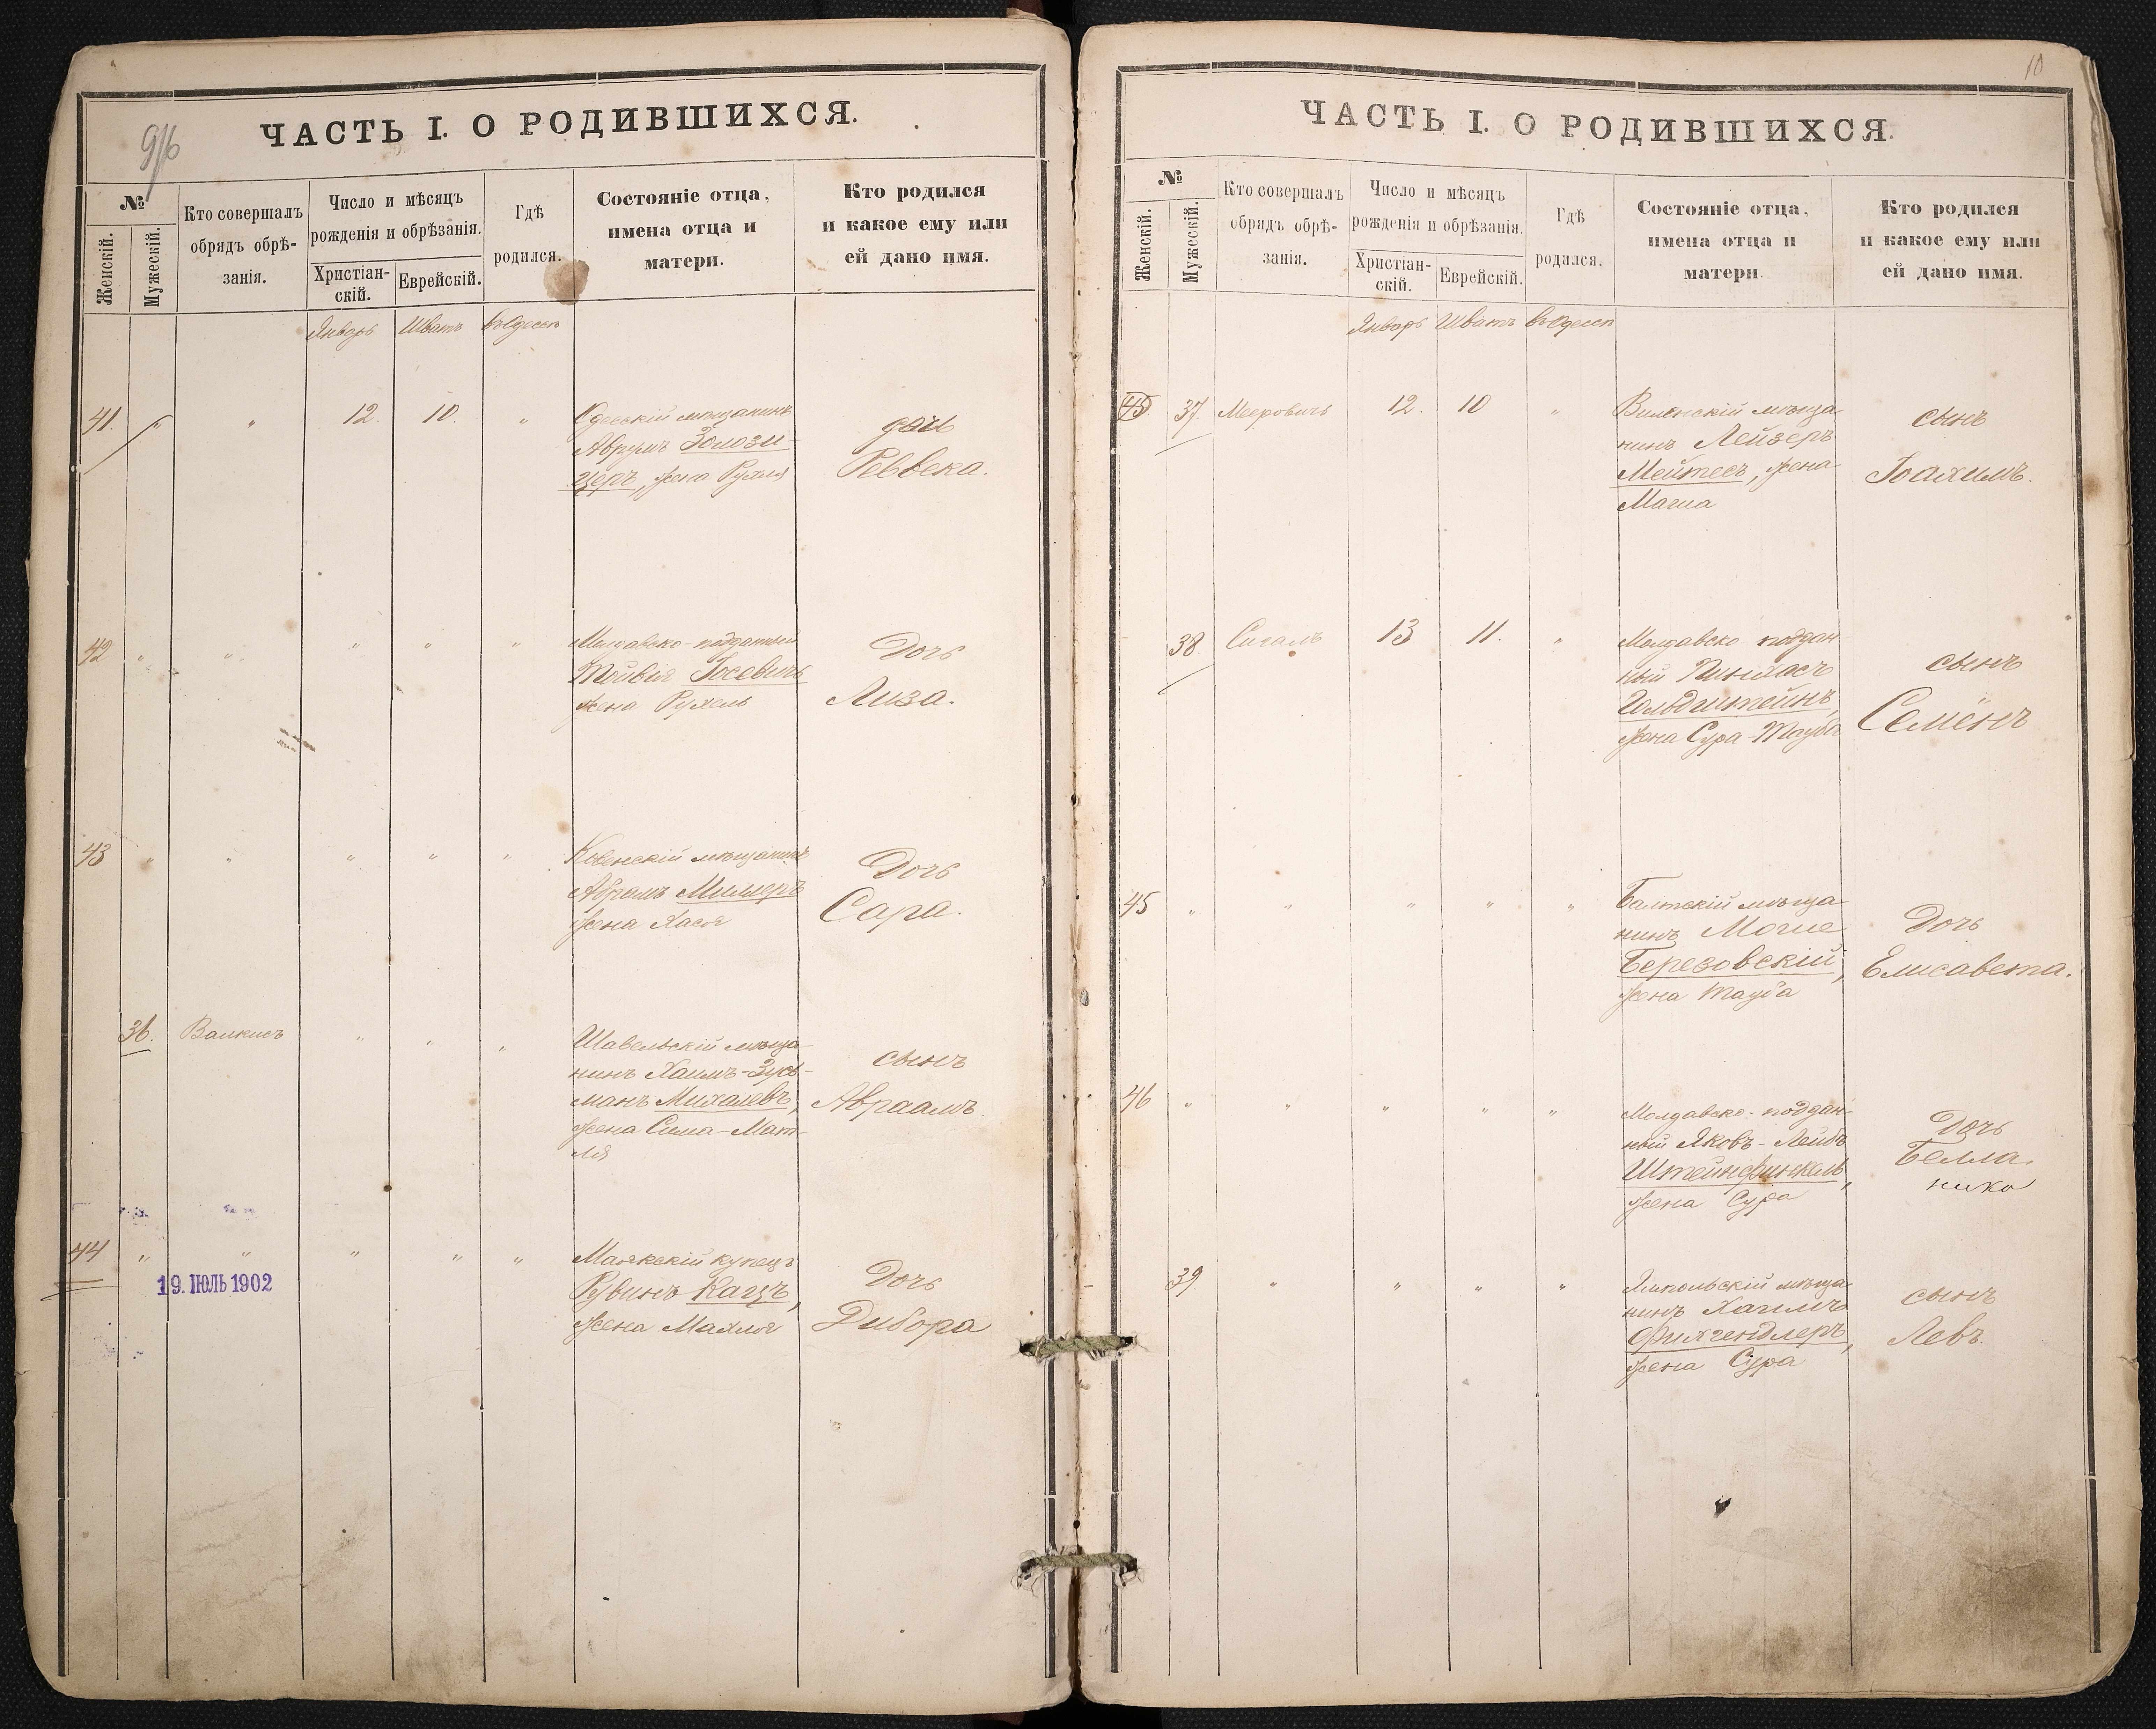 9/16
ЧАСТЬ I. О РОДИВШИХСЯ.
№
Женскій.
Мужескій.
Кто совершалъ
обрядъ обрѣ-
занія.
Число и мѣсяцъ
рожденія и обрѣзанія.
Христіан-
скій.
Еврейскій.
Гдѣ
родился.
Состояніе отца,
имена отца и
матери.
Кто родился
и какое ему или
ей дано имя.
Январь Шватъ въ Одессѣ
41. " " 12. 10. "
Одесскій мѣщанинъ
Аврумъ
церъ, жена Рухля
Реввека.
42 " " " " "
Молдавско-подданный
Тойвія Іосевичъ
жена Рухель
Дочь
Лиза.
43 " " " " "
Ковенскій мѣщанинъ
Абрамъ Миллеръ
жена Хася
Дочь
Сара.
36. Валкисъ " " "
Шавельскій мѣща-
нинъ Хаимъ-Зусь-
манъ Михалевъ,
жена Сима-Мат-
ля
сынъ
Авраамъ
44 " " " " "
19. ІЮЛЬ 1902
Маякскій купецъ
Рувинъ Кацъ,
жена Махля
Дочь
Дибора
10
ЧАСТЬ I. О РОДИВШИХСЯ.
№
Женскій.
Мужескій.
Кто совершалъ
обрядъ обрѣ-
занія.
Число и мѣсяцъ
рожденія и обрѣзанія.
Христіан-
скій.
Еврейскій.
Гдѣ
родился.
Состояніе отца,
имена отца и
матери.
Кто родился
и какое ему или
ей дано имя.
Январь Шватъ въ Одессѣ
45. 37. Мееровичъ 12. 10 "
Виленскій мѣща-
нинъ Лейзеръ
Мейтесъ, жена
Маша
сынъ
Іоахимъ.
38. Сигалъ 13 11. "
Молдавско поддан
ный Пинхасъ
Гольдштейнъ,
жена Сура-Тауба
сынъ
Семёнъ
45 " " " " "
Балтскій мѣща
нинъ Мошe
Березовскій,
жена Тауба
Дочь
Елисавета.
46 " " " " "
Молдавско-поддан-
ный Яковъ-Лейбъ
Штейнфинкель,
жена Сура
Дочь
Белла.
39. " " " "
Ямпольскій мѣща
нинъ Хаимъ
Фихгендлеръ,
жена Сура
сынъ
Левъ.